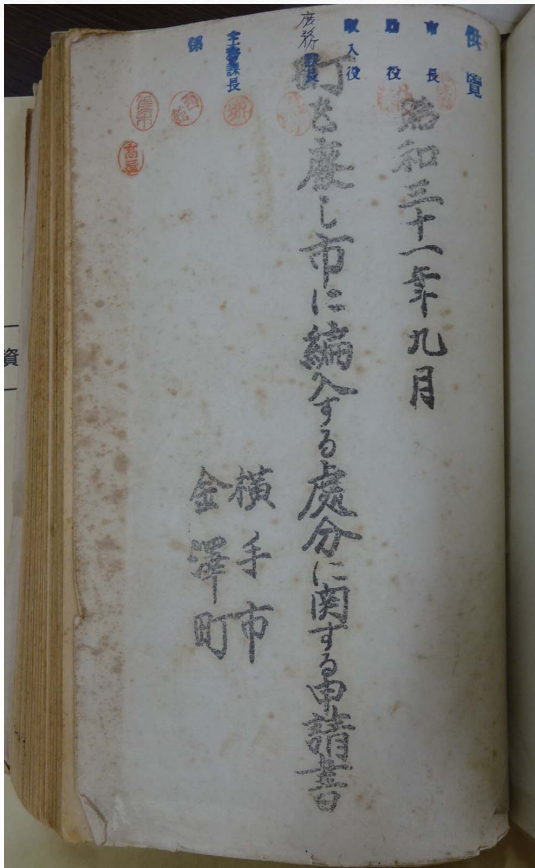 供覧
市長
助役
収入役
庶務課長
主務課長
係
昭和三十一年九月
町を廃し市に編入する處分に関する申請書
横手市
金澤町
資